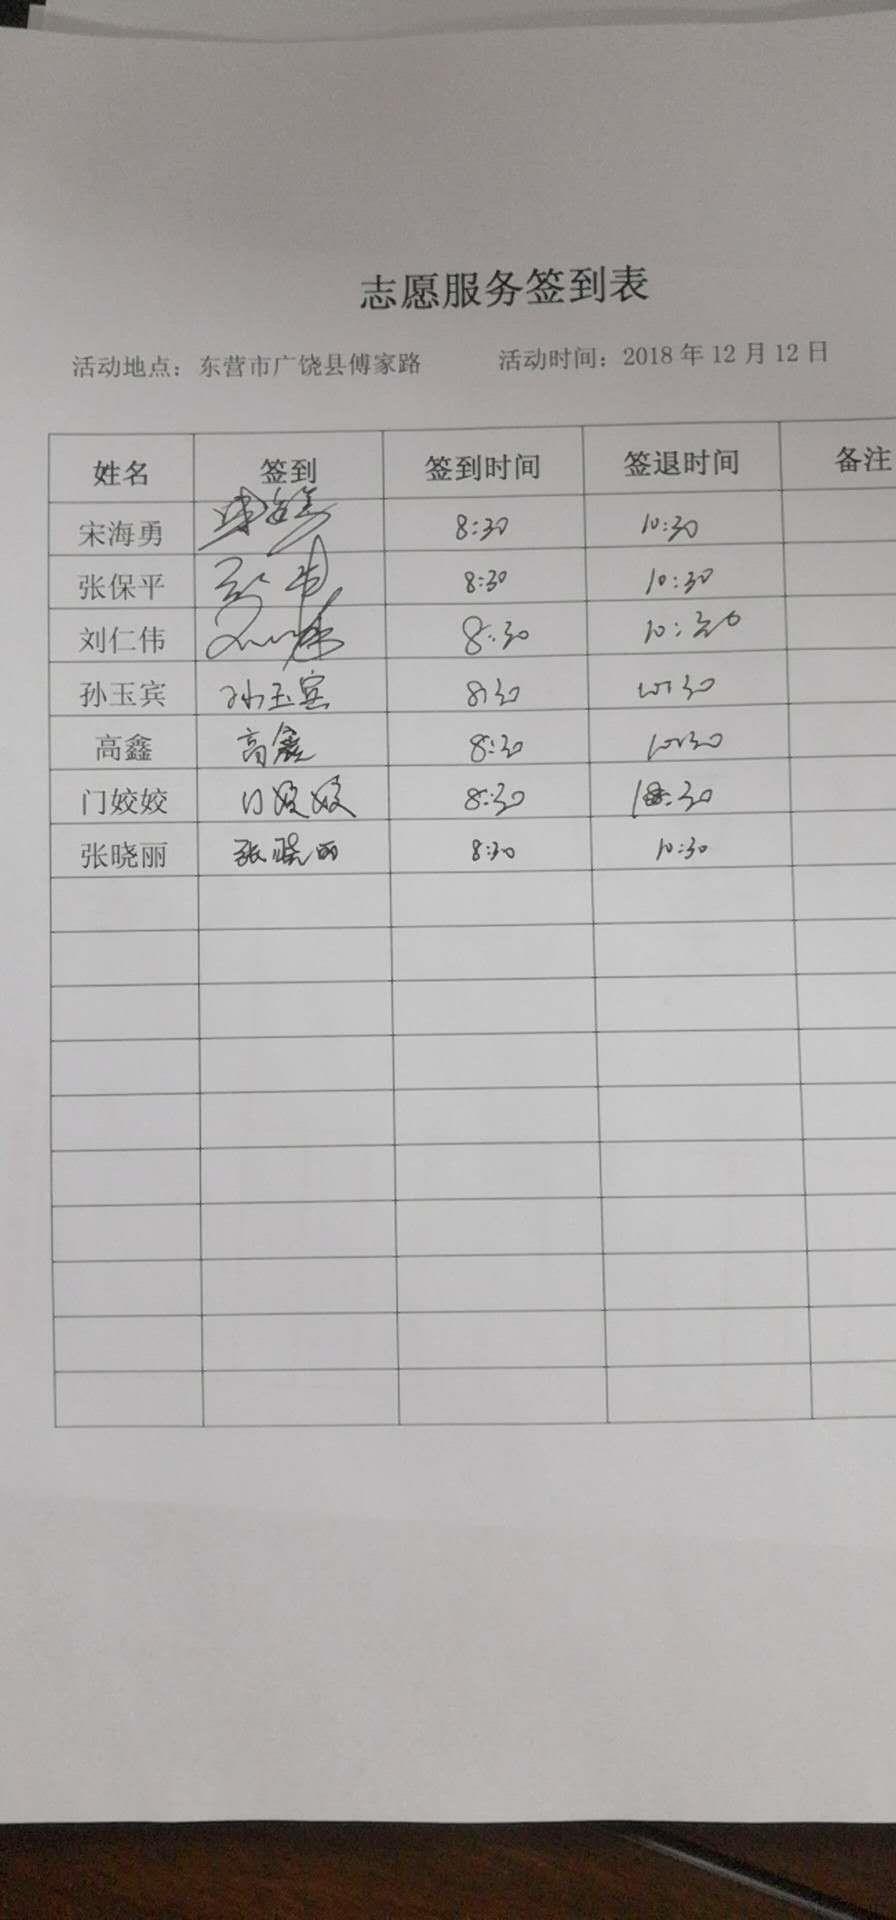 志愿服务签到表
活动地点：东营市广饶县傅家路 活动时间：2018年12月12日
姓名 签到 签到时间 签退时间 备注
宋海勇 8:30 10:30
张保平 8:30 10:30
刘仁伟 8:30 10:30
孙玉宾 孙玉宾 8:30 10:30
高鑫 高鑫 8:30 10:30
门姣姣 门姣姣 8:30 10:30
张晓丽 张晓丽 8:30 10:30